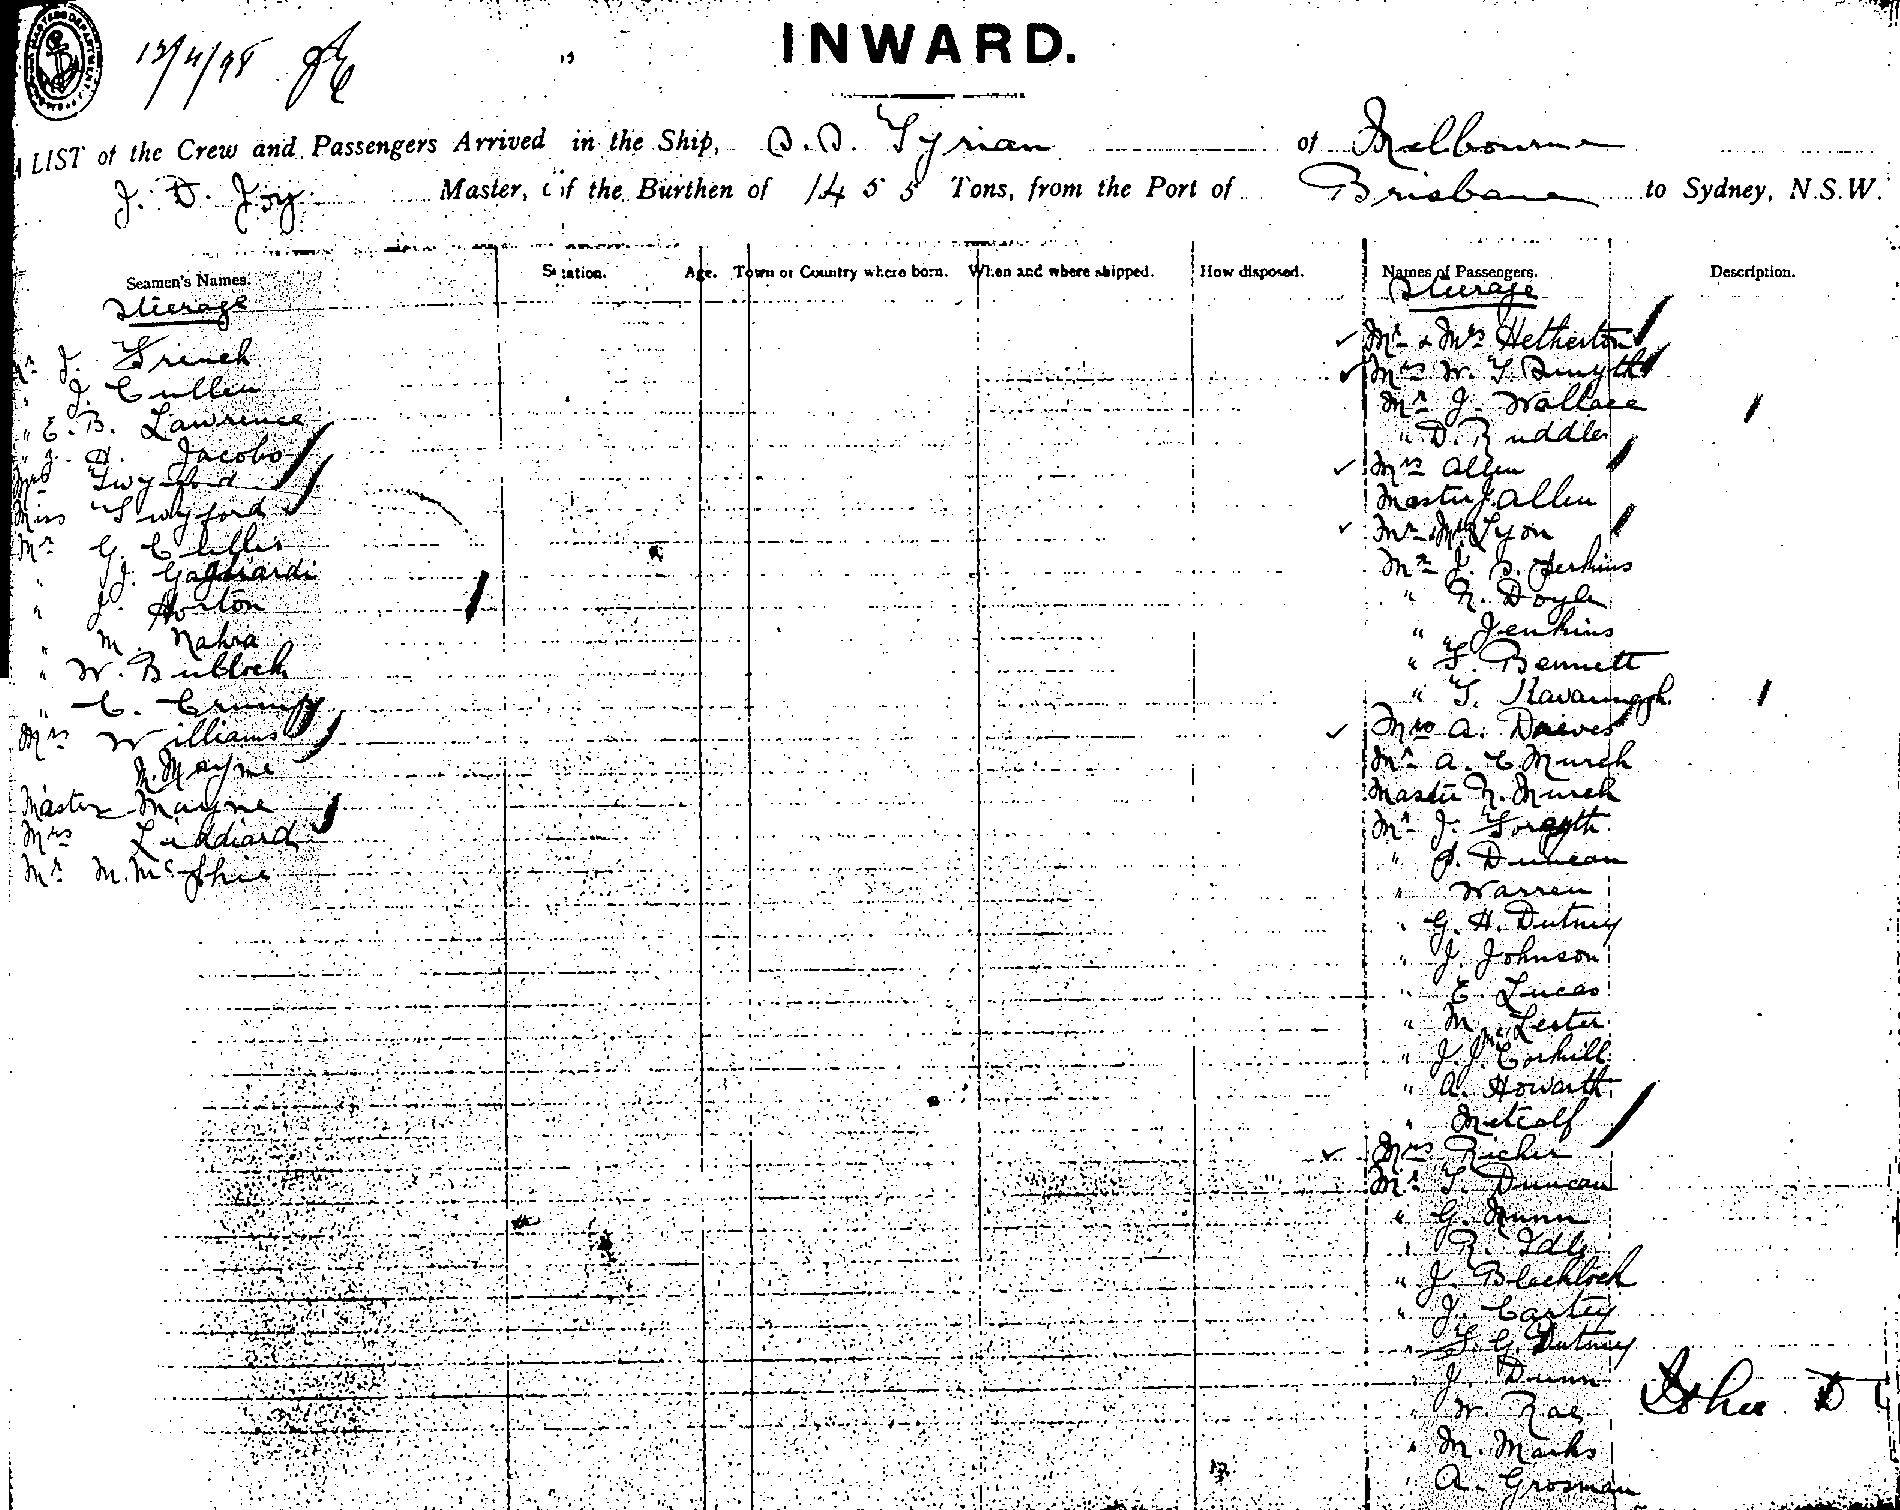 12/4/98
INWARD.
LIST of the Crew and Passengers Arrived in the Ship, S.S. Tyrian of Melbourne
J. D. Joy Master, of the Burthen of 1455 Tons, from the Port of Brisbane to Sydney, N.S.W.
Seamen's Names. Station. Age. Town or Country where born. When and where shipped. How disposed. Names of Passengers. Description.
Steerage
Mr J. French
" J. Cullen
" E. B. Lawrence
" J. H. Jacobs
Mrs Twyford
Miss Twyford
Mr G. C
" J. Gagliardi
" J. Horton
" M. Nahra
" W. Bullock
" C. Crump
Mrs Williams
M. Mayne
Master Mayne
Mrs Luddiard
Mr M. McPhie
Steerage
Mr & Mrs Hetherton
Mrs W. T. Smyth
Mr J. Wallace
" D. Ruddler
Mrs Allen
Master J. Allen
Mr & Mrs Lyon
Mr J. S. Perkins
" N. Doyle
" Jenkins
" T. Bennett
" T. Kavanagh
Mrs A. Daives
Mr A. C Murch
Master N. Murch
Mr J. Forsyth
" J. Duncan
" Warren
" G. H. Dutney
" J. Johnson
" E. Lucas
" M. Lester
" J. J. McCorkill
" A. Howarth
" Metcalf
Mrs Richer
Mr T. Duncan
" G. Nunn
" R. Idle
" J. Blacklock
" J. Cartey
" T. G. Dutney
" J. Dunn
" W. Rae
" M. Marks
" A. Grosman
John D